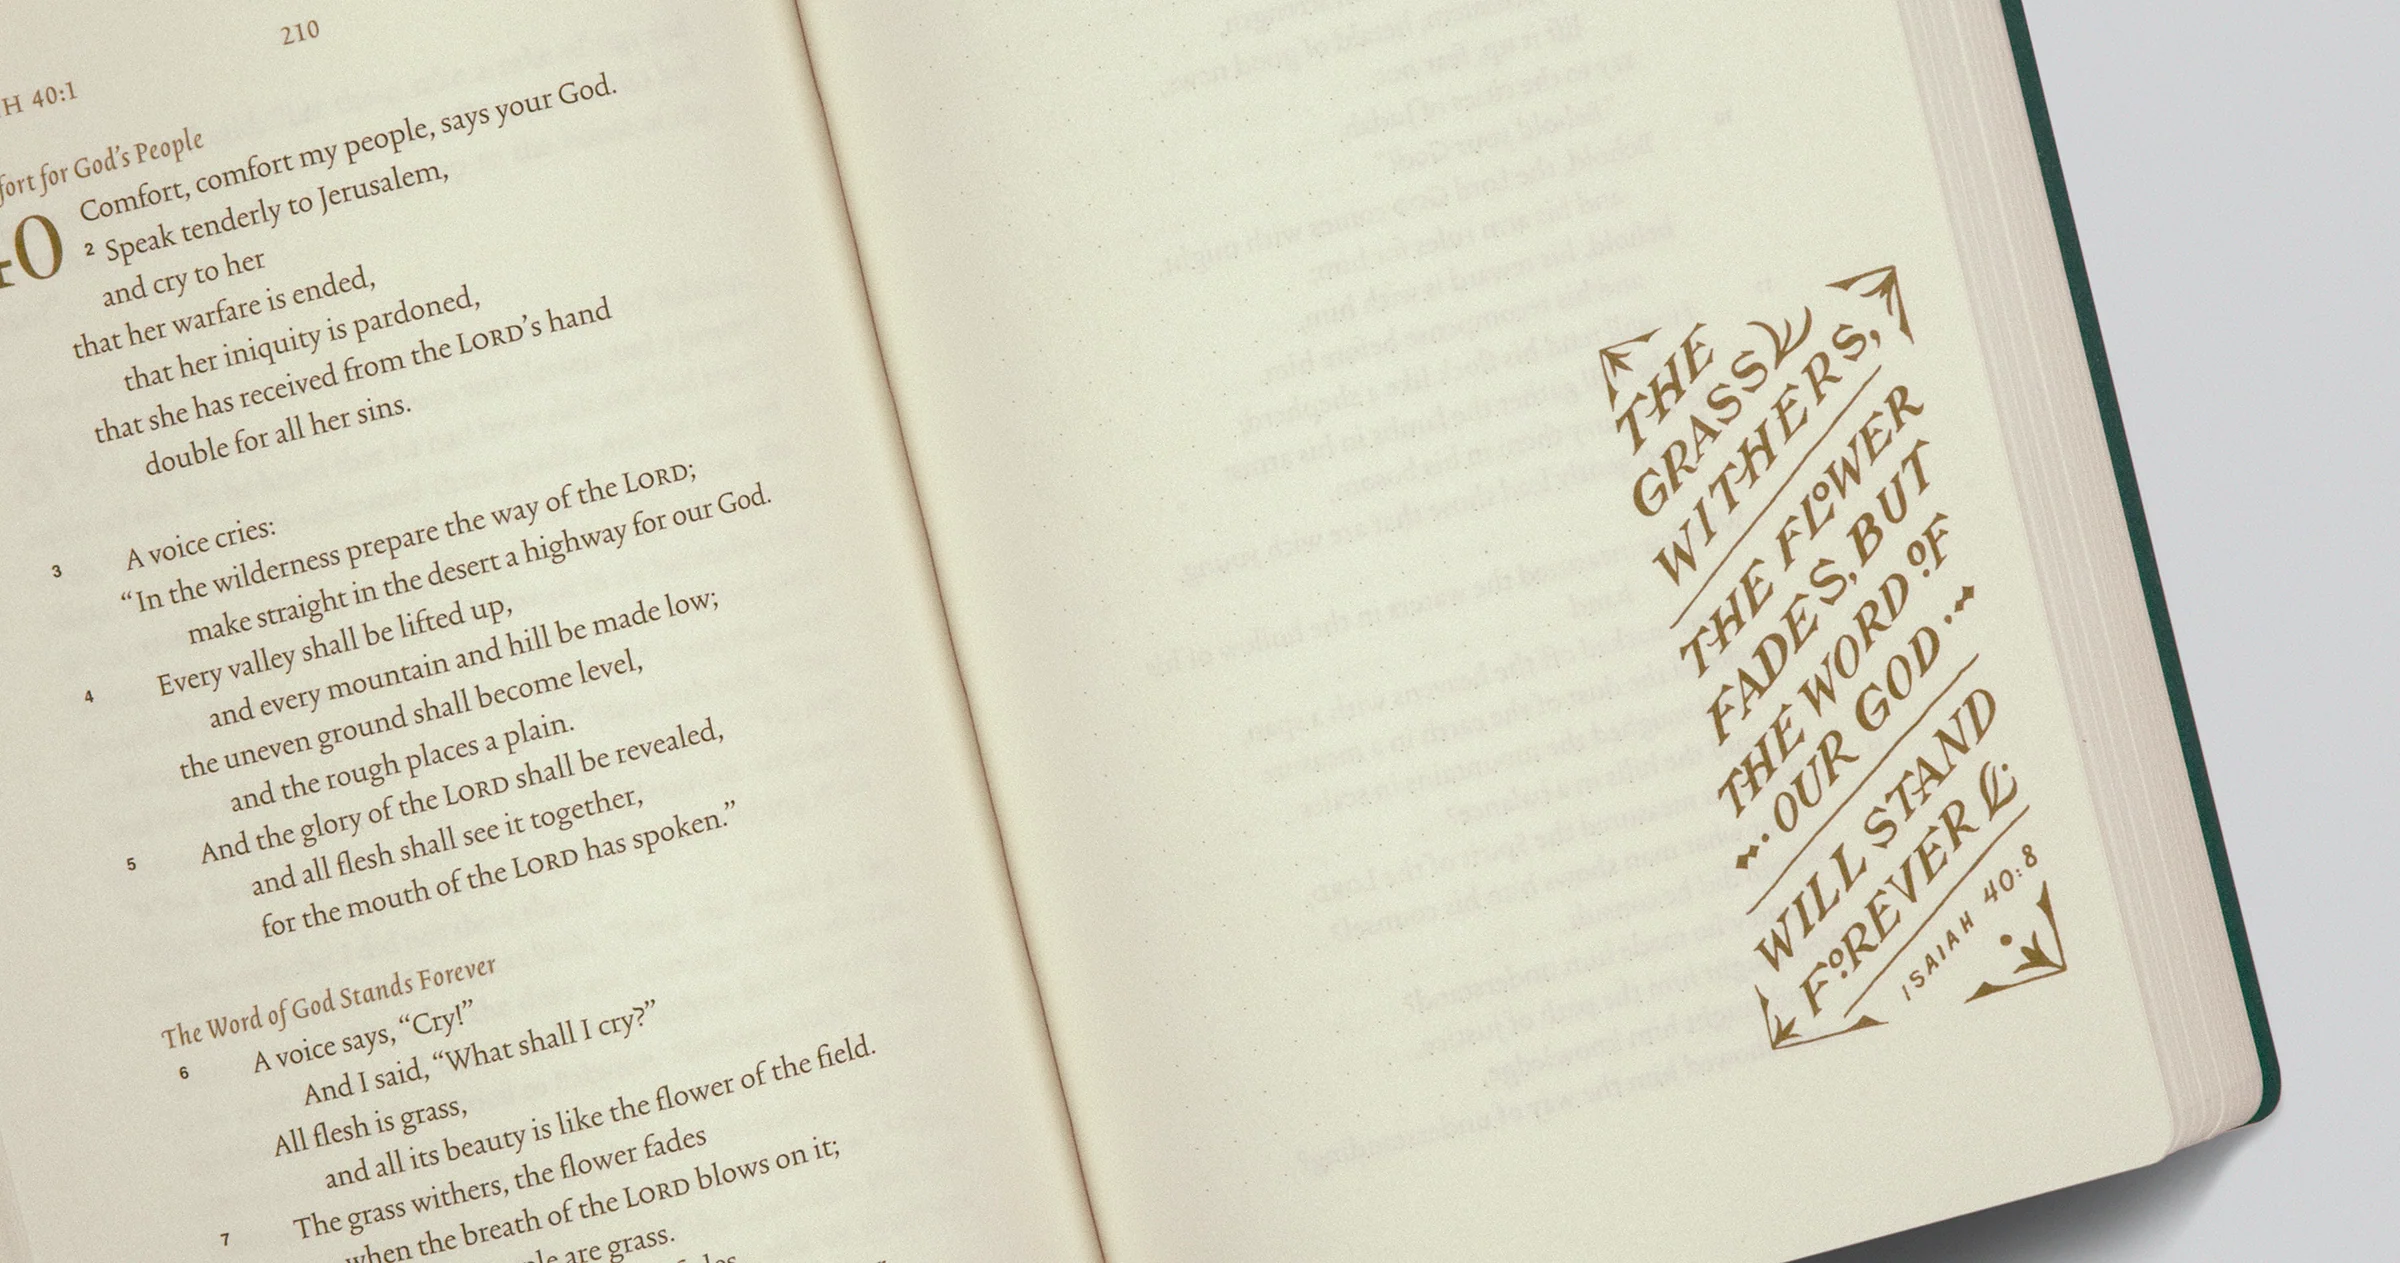 210
H 40:1
fort for God’s People
40
Comfort, comfort my people, says your God.
2 Speak tenderly to Jerusalem,
and cry to her
that her warfare is ended,
that her iniquity is pardoned,
that she has received from the LORD’s hand
double for all her sins.
3 A voice cries:
“In the wilderness prepare the way of the LORD;
make straight in the desert a highway for our God.
4 Every valley shall be lifted up,
and every mountain and hill be made low;
the uneven ground shall become level,
and the rough places a plain.
5 And the glory of the LORD shall be revealed,
and all flesh shall see it together,
for the mouth of the LORD has spoken.”
The Word of God Stands Forever
6 A voice says, “Cry!”
And I said, “What shall I cry?”
All flesh is grass,
and all its beauty is like the flower of the field.
7 The grass withers, the flower fades
when the breath of the LORD blows on it;
are grass.
THE
GRASS
WITHERS,
THE FLOWER
FADES, BUT
THE WORD OF
OUR GOD
WILL STAND
FOREVER
ISAIAH 40:8